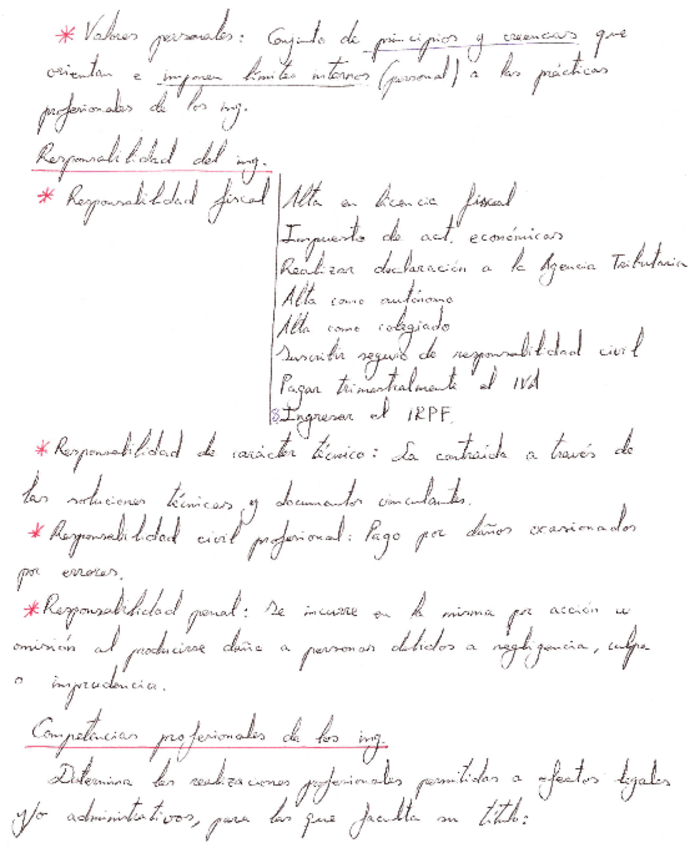 * Valores personales: Conjunto de principios y creencias que
orientan e imponen límites internos (personal) a las prácticas
profesionales de los ing.
Responsabilidad del ing.
* Responsabilidad fiscal
Alta en licencia fiscal
Impuesto de act. económicas
Realizar declaración a la Agencia Tributaria
Alta como autónomo
Alta como colegiado
Suscribir seguro de responsabilidad civil
Pagar trimestralmente el IVA
8 Ingresar el IRPF.
* Responsabilidad de carácter técnico: La contraída a través de
las soluciones técnicas y documentos vinculantes.
* Responsabilidad civil profesional: Pago por daños ocasionados
por errores.
* Responsabilidad penal: Se incurre en la misma por acción u
omisión al producirse daño a personas debidos a negligencia, culpa
o imprudencia.
Competencias profesionales de los ing.
Determina las realizaciones profesionales permitidas a efectos legales
y/o administrativos, para las que faculta su título: